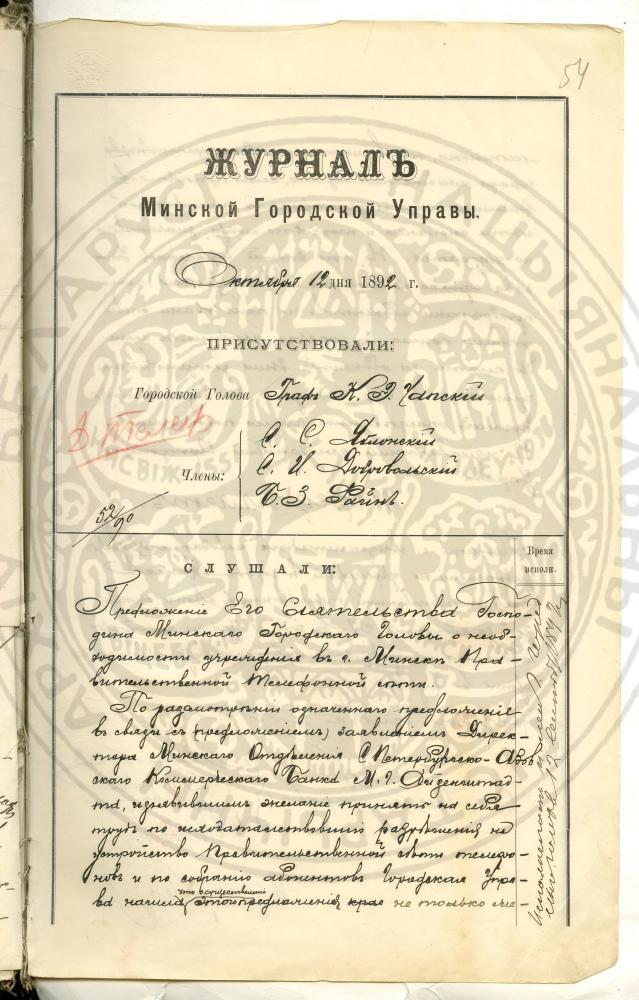 54
ЖУРНАЛЪ
Минской Городской Управы.
Октября 12 дня 1892 г.
ПРИСУТСТВОВАЛИ:
Городской Голова Графъ К. Э. Чапскій
Члены:
С. С. Яблонскій
С. И. Добровольскій
Б. З. Райнъ.
52/90
СЛУШАЛИ:
Время исполн.
Предложеніе Его Сіятельства Госпо-
дина Минскаго Городскаго Головы о необ-
ходимости учрежденія въ г. Минскѣ Пра-
вительственной телефонной сѣти.
По разсмотрѣніи означеннаго предложенія
въ связи съ (предложеніемъ) заявленіемъ Дирек-
тора Минскаго Отдѣленія С Петербургско-Азов
скаго Коммерческаго Банка М. г.
та, изъявившимъ желаніе принять на себя
трудъ по исходатайствованію разрѣшенія на
устройство Правительственной сѣти телефо-
новъ и по собранію абонентовъ Городская Упра-
что осуществленіе
ва нашла этого предложенія края не только